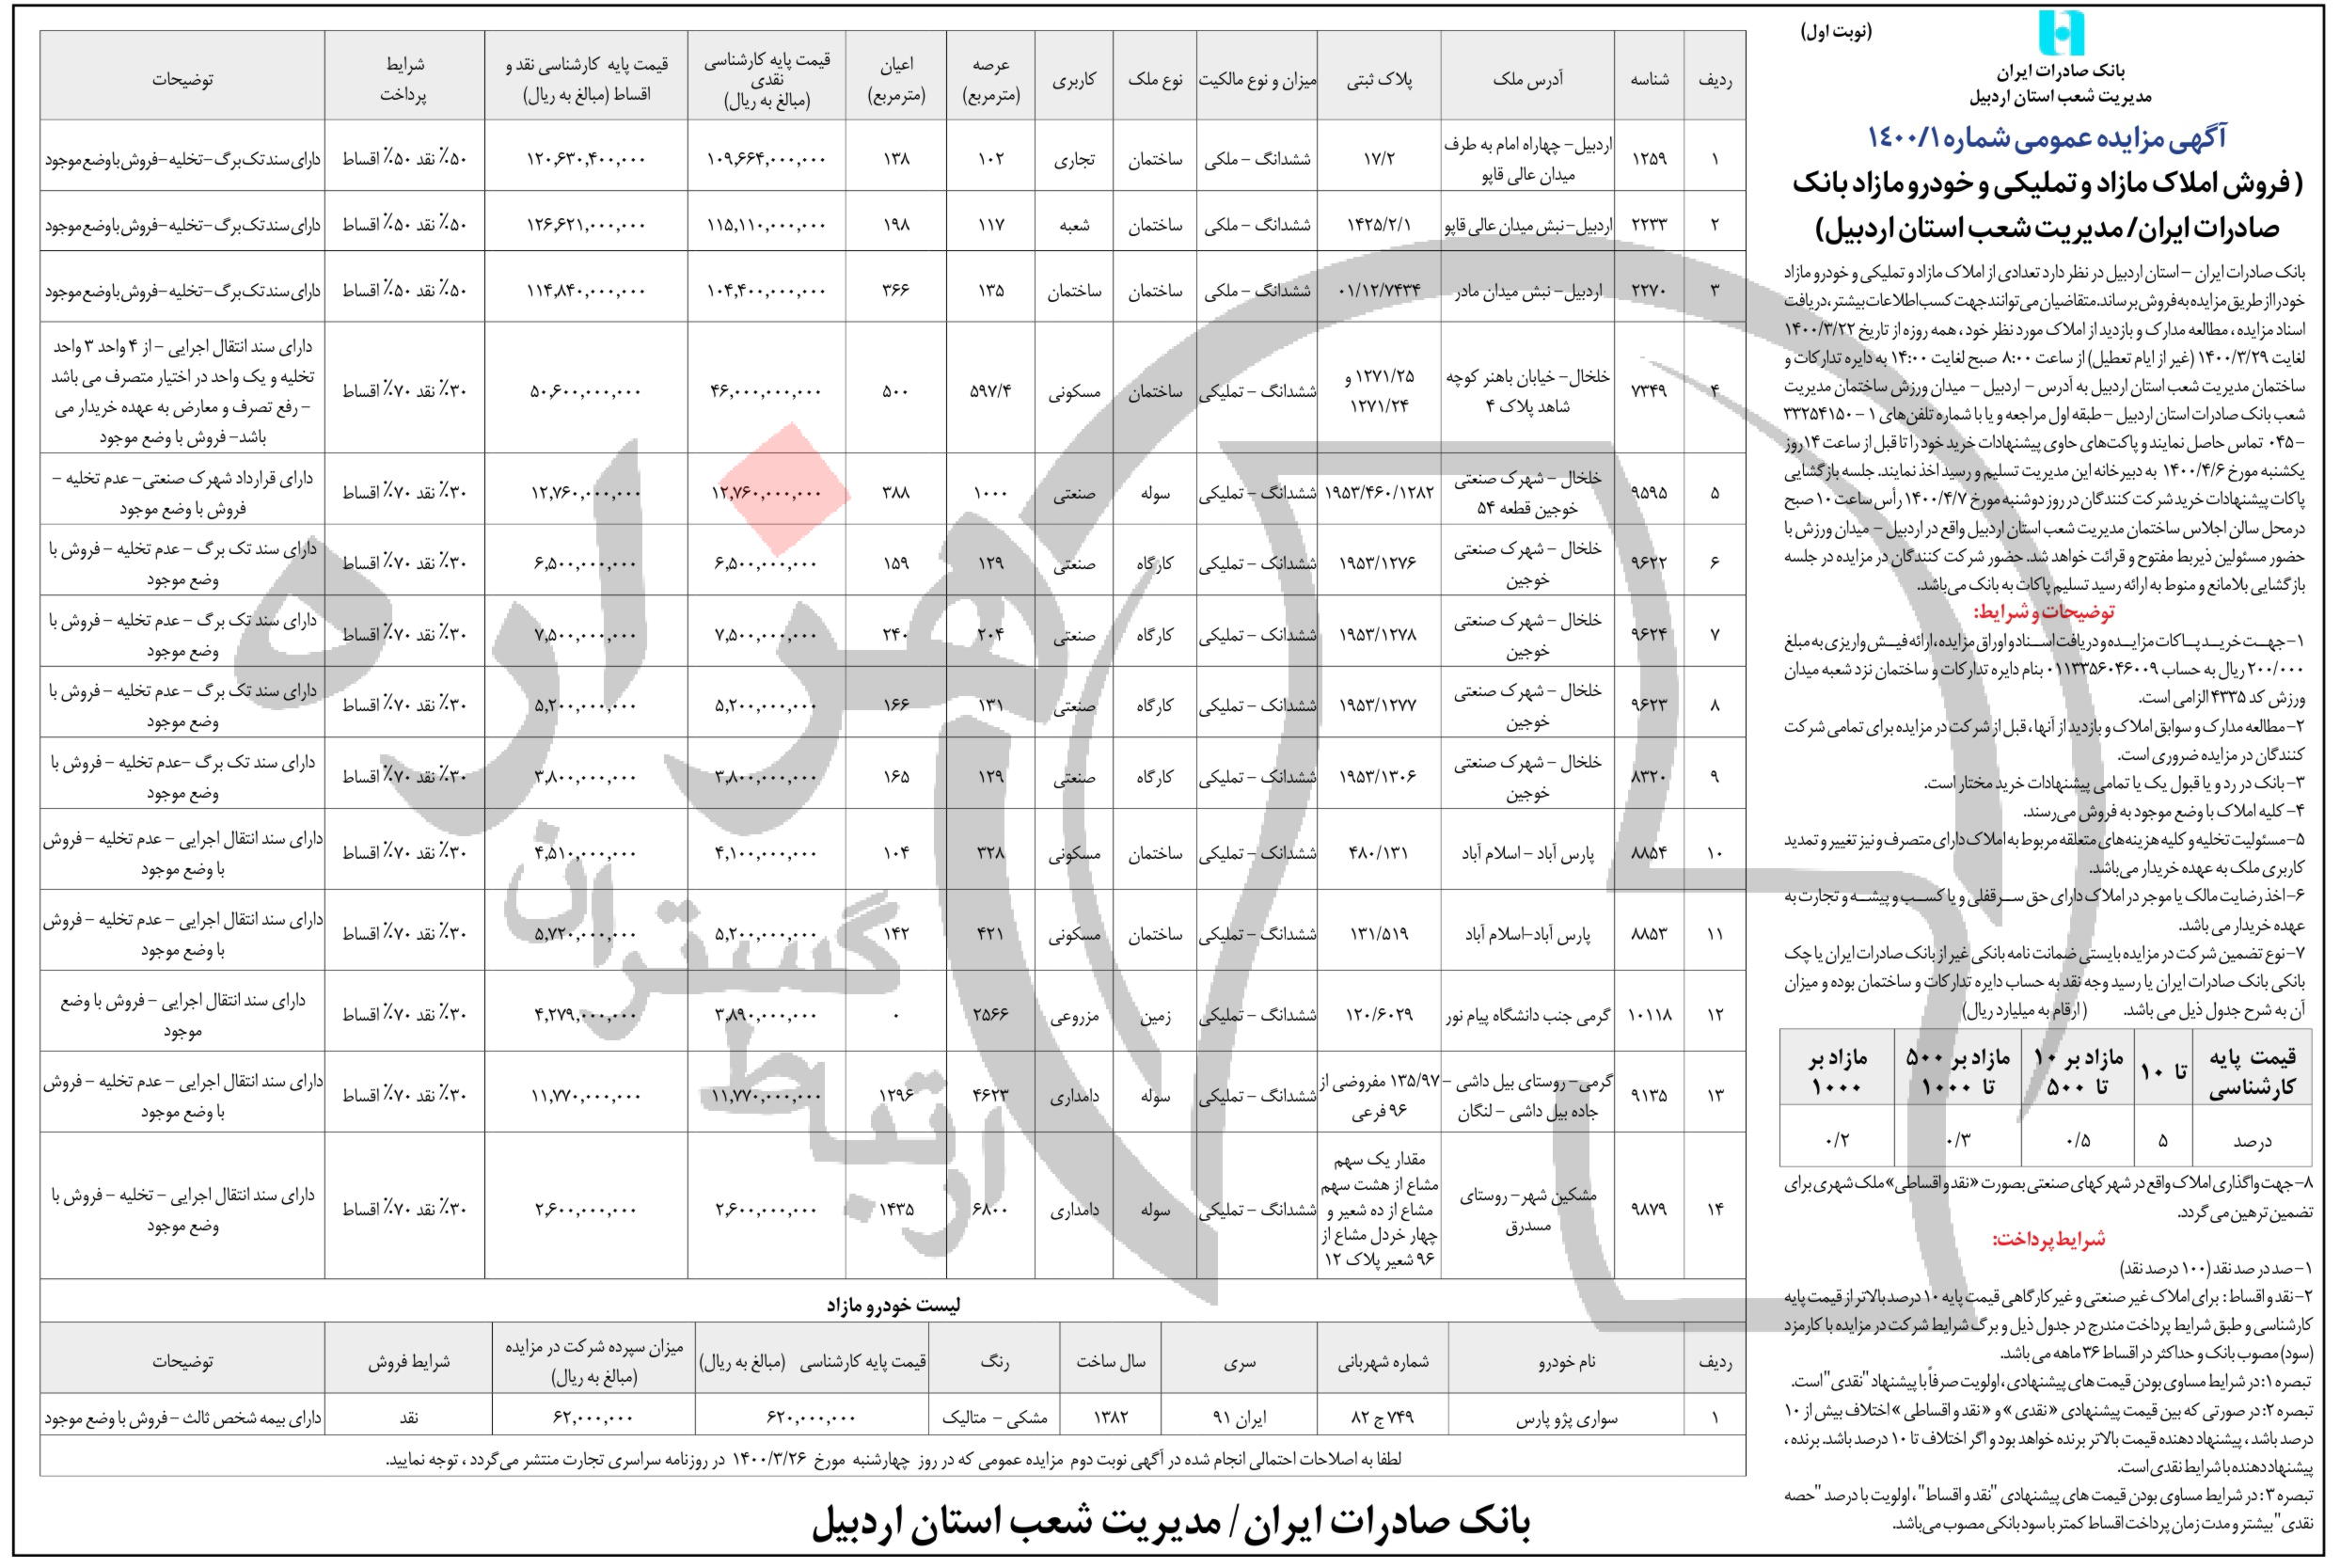 (نوبت اول)
بانک صادرات ایران
مدیریت شعب استان اردبیل
آگهی مزایده عمومی شماره ۱۴۰۰/۱
( فروش املاک مازاد و تملیکی و خودرو مازاد بانک
صادرات ایران/ مدیریت شعب استان اردبیل)
بانک صادرات ایران – استان اردبیل در نظر دارد تعدادی از املاک مازاد و تملیکی و خودرو مازاد
خود را از طریق مزایده به فروش برساند. متقاضیان می توانند جهت کسب اطلاعات بیشتر، دریافت
اسناد مزایده ، مطالعه مدارک و بازدید از املاک مورد نظر خود ، همه روزه از تاریخ ۱۴۰۰/۳/۲۲
لغایت ۱۴۰۰/۳/۲۹ (غیر از ایام تعطیل) از ساعت ۸:۰۰ صبح لغایت ۱۴:۰۰ به دایره تدارکات و
ساختمان مدیریت شعب استان اردبیل به آدرس – اردبیل – میدان ورزش ساختمان مدیریت
شعب بانک صادرات استان اردبیل – طبقه اول مراجعه و یا با شماره تلفن های ۱ – ۳۳۲۵۴۱۵۰
– ۰۴۵ تماس حاصل نمایند و پاکت های حاوی پیشنهادات خرید خود را تا قبل از ساعت ۱۴ روز
یکشنبه مورخ ۱۴۰۰/۴/۶ به دبیرخانه این مدیریت تسلیم و رسید اخذ نمایند. جلسه بازگشایی
پاکات پیشنهادات خرید شرکت کنندگان در روز دوشنبه مورخ ۱۴۰۰/۴/۷ رأس ساعت ۱۰ صبح
در محل سالن اجلاس ساختمان مدیریت شعب استان اردبیل واقع در اردبیل – میدان ورزش با
حضور مسئولین ذیربط مفتوح و قرائت خواهد شد. حضور شرکت کنندگان در مزایده در جلسه
بازگشایی بلامانع و منوط به ارائه رسید تسلیم پاکات به بانک می باشد.
توضیحات و شرایط:
۱–جهت خرید پاکات مزایده و دریافت اسناد و اوراق مزایده، ارائه فیش واریزی به مبلغ
۲۰۰/۰۰۰ ریال به حساب ۰۱۱۳۳۵۶۰۴۶۰۰۹ بنام دایره تدارکات و ساختمان نزد شعبه میدان
ورزش کد ۴۳۳۵ الزامی است.
۲–مطالعه مدارک و سوابق املاک و بازدید از آنها ، قبل از شرکت در مزایده برای تمامی شرکت
کنندگان در مزایده ضروری است.
۳–بانک در رد و یا قبول یک یا تمامی پیشنهادات خرید مختار است.
۴– کلیه املاک با وضع موجود به فروش می رسند.
۵–مسئولیت تخلیه و کلیه هزینه های متعلقه مربوط به املاک دارای متصرف و نیز تغییر و تمدید
کاربری ملک به عهده خریدار می باشد.
۶–اخذ رضایت مالک یا موجر در املاک دارای حق سرقفلی و یا کسب و پیشه و تجارت به
عهده خریدار می باشد.
۷–نوع تضمین شرکت در مزایده بایستی ضمانت نامه بانکی غیر از بانک صادرات ایران یا چک
بانکی بانک صادرات ایران یا رسید وجه نقد به حساب دایره تدارکات و ساختمان بوده و میزان
آن به شرح جدول ذیل می باشد. (ارقام به میلیارد ریال)
قیمت پایه کارشناسی | تا ۱۰ | مازاد بر ۱۰ تا ۵۰۰ | مازاد بر ۵۰۰ تا ۱۰۰۰ | مازاد بر ۱۰۰۰
درصد | ۵ | ۰/۵ | ۰/۳ | ۰/۲
۸–جهت واگذاری املاک واقع در شهرکهای صنعتی بصورت «نقد و اقساطی» ملک شهری برای
تضمین ترهین می گردد.
شرایط پرداخت:
۱–صد در صد نقد (۱۰۰ درصد نقد)
۲–نقد و اقساط : برای املاک غیر صنعتی و غیر کارگاهی قیمت پایه ۱۰ درصد بالاتر از قیمت پایه
کارشناسی و طبق شرایط پرداخت مندرج در جدول ذیل و برگ شرایط شرکت در مزایده با کارمزد
(سود) مصوب بانک و حداکثر در اقساط ۳۶ ماهه می باشد.
تبصره ۱: در شرایط مساوی بودن قیمت های پیشنهادی ، اولویت صرفاً با پیشنهاد "نقدی" است.
تبصره ۲: در صورتی که بین قیمت پیشنهادی «نقدی » و «نقد و اقساطی » اختلاف بیش از ۱۰
درصد باشد ، پیشنهاد دهنده قیمت بالاتر برنده خواهد بود و اگر اختلاف تا ۱۰ درصد باشد. برنده ،
پیشنهاد دهنده با شرایط نقدی است.
تبصره ۳: در شرایط مساوی بودن قیمت های پیشنهادی "نقد و اقساط" ، اولویت با درصد "حصه
نقدی" بیشتر و مدت زمان پرداخت اقساط کمتر با سود بانکی مصوب می باشد.
ردیف | شناسه | آدرس ملک | پلاک ثبتی | میزان و نوع مالکیت | نوع ملک | کاربری | عرصه (مترمربع) | اعیان (مترمربع) | قیمت پایه کارشناسی نقدی (مبالغ به ریال) | قیمت پایه کارشناسی نقد و اقساط (مبالغ به ریال) | شرایط پرداخت | توضیحات
۱ | ۱۲۵۹ | اردبیل– چهاراه امام به طرف میدان عالی قاپو | ۱۷/۲ | ششدانگ – ملکی | ساختمان | تجاری | ۱۰۲ | ۱۳۸ | ۱۰۹,۶۶۴,۰۰۰,۰۰۰ | ۱۲۰,۶۳۰,۴۰۰,۰۰۰ | ۵۰٪ نقد ۵۰٪ اقساط | دارای سند تک برگ –تخلیه –فروش با وضع موجود
۲ | ۲۲۳۳ | اردبیل–نبش میدان عالی قاپو | ۱۴۲۵/۲/۱ | ششدانگ – ملکی | ساختمان | شعبه | ۱۱۷ | ۱۹۸ | ۱۱۵,۱۱۰,۰۰۰,۰۰۰ | ۱۲۶,۶۲۱,۰۰۰,۰۰۰ | ۵۰٪ نقد ۵۰٪ اقساط | دارای سند تک برگ –تخلیه –فروش با وضع موجود
۳ | ۲۲۷۰ | اردبیل– نبش میدان مادر | ۰۱/۱۲/۷۴۳۴ | ششدانگ – ملکی | ساختمان | ساختمان | ۱۳۵ | ۳۶۶ | ۱۰۴,۴۰۰,۰۰۰,۰۰۰ | ۱۱۴,۸۴۰,۰۰۰,۰۰۰ | ۵۰٪ نقد ۵۰٪ اقساط | دارای سند تک برگ –تخلیه –فروش با وضع موجود
۴ | ۷۳۴۹ | خلخال– خیابان باهنر کوچه شاهد پلاک ۴ | ۱۲۷۱/۲۵ و ۱۲۷۱/۲۴ | ششدانگ – تملیکی | ساختمان | مسکونی | ۵۹۷/۴ | ۵۰۰ | ۴۶,۰۰۰,۰۰۰,۰۰۰ | ۵۰,۶۰۰,۰۰۰,۰۰۰ | ۳۰٪ نقد ۷۰٪ اقساط | دارای سند انتقال اجرایی – از ۴ واحد ۳ واحد تخلیه و یک واحد در اختیار متصرف می باشد – رفع تصرف و معارض به عهده خریدار می باشد– فروش با وضع موجود
۵ | ۹۵۹۵ | خلخال – شهرک صنعتی خوجین قطعه ۵۴ | ۱۹۵۳/۴۶۰/۱۲۸۲ | ششدانگ – تملیکی | سوله | صنعتی | ۱۰۰۰ | ۳۸۸ | ۱۲,۷۶۰,۰۰۰,۰۰۰ | ۱۲,۷۶۰,۰۰۰,۰۰۰ | ۳۰٪ نقد ۷۰٪ اقساط | دارای قرارداد شهرک صنعتی– عدم تخلیه – فروش با وضع موجود
۶ | ۹۶۲۲ | خلخال – شهرک صنعتی خوجین | ۱۹۵۳/۱۲۷۶ | ششدانگ – تملیکی | کارگاه | صنعتی | ۱۲۹ | ۱۵۹ | ۶,۵۰۰,۰۰۰,۰۰۰ | ۶,۵۰۰,۰۰۰,۰۰۰ | ۳۰٪ نقد ۷۰٪ اقساط | دارای سند تک برگ – عدم تخلیه – فروش با وضع موجود
۷ | ۹۶۲۴ | خلخال – شهرک صنعتی خوجین | ۱۹۵۳/۱۲۷۸ | ششدانگ – تملیکی | کارگاه | صنعتی | ۲۰۴ | ۲۴۰ | ۷,۵۰۰,۰۰۰,۰۰۰ | ۷,۵۰۰,۰۰۰,۰۰۰ | ۳۰٪ نقد ۷۰٪ اقساط | دارای سند تک برگ – عدم تخلیه – فروش با وضع موجود
۸ | ۹۶۲۳ | خلخال – شهرک صنعتی خوجین | ۱۹۵۳/۱۲۷۷ | ششدانگ – تملیکی | کارگاه | صنعتی | ۱۳۱ | ۱۶۶ | ۵,۲۰۰,۰۰۰,۰۰۰ | ۵,۲۰۰,۰۰۰,۰۰۰ | ۳۰٪ نقد ۷۰٪ اقساط | دارای سند تک برگ – عدم تخلیه – فروش با وضع موجود
۹ | ۸۳۲۰ | خلخال – شهرک صنعتی خوجین | ۱۹۵۳/۱۳۰۶ | ششدانگ – تملیکی | کارگاه | صنعتی | ۱۲۹ | ۱۶۵ | ۳,۸۰۰,۰۰۰,۰۰۰ | ۳,۸۰۰,۰۰۰,۰۰۰ | ۳۰٪ نقد ۷۰٪ اقساط | دارای سند تک برگ –عدم تخلیه – فروش با وضع موجود
۱۰ | ۸۸۵۴ | پارس آباد – اسلام آباد | ۴۸۰/۱۳۱ | ششدانگ – تملیکی | ساختمان | مسکونی | ۳۲۸ | ۱۰۴ | ۴,۱۰۰,۰۰۰,۰۰۰ | ۴,۵۱۰,۰۰۰,۰۰۰ | ۳۰٪ نقد ۷۰٪ اقساط | دارای سند انتقال اجرایی – عدم تخلیه – فروش با وضع موجود
۱۱ | ۸۸۵۳ | پارس آباد–اسلام آباد | ۱۳۱/۵۱۹ | ششدانگ – تملیکی | ساختمان | مسکونی | ۴۲۱ | ۱۴۲ | ۵,۲۰۰,۰۰۰,۰۰۰ | ۵,۷۲۰,۰۰۰,۰۰۰ | ۳۰٪ نقد ۷۰٪ اقساط | دارای سند انتقال اجرایی – عدم تخلیه – فروش با وضع موجود
۱۲ | ۱۰۱۱۸ | گرمی جنب دانشگاه پیام نور | ۱۲۰/۶۰۲۹ | ششدانگ – تملیکی | زمین | مزروعی | ۲۵۶۶ | ۰ | ۳,۸۹۰,۰۰۰,۰۰۰ | ۴,۲۷۹,۰۰۰,۰۰۰ | ۳۰٪ نقد ۷۰٪ اقساط | دارای سند انتقال اجرایی – فروش با وضع موجود
۱۳ | ۹۱۳۵ | گرمی– روستای بیل داشی – جاده بیل داشی – لنگان | ۱۳۵/۹۷ مفروضی از ۹۶ فرعی | ششدانگ – تملیکی | سوله | دامداری | ۴۶۲۳ | ۱۲۹۶ | ۱۱,۷۷۰,۰۰۰,۰۰۰ | ۱۱,۷۷۰,۰۰۰,۰۰۰ | ۳۰٪ نقد ۷۰٪ اقساط | دارای سند انتقال اجرایی – عدم تخلیه – فروش با وضع موجود
۱۴ | ۹۸۷۹ | مشکین شهر– روستای مسدرق | مقدار یک سهم مشاع از هشت سهم مشاع از ده شعیر و چهار خردل مشاع از ۹۶ شعیر پلاک ۱۲ | ششدانگ – تملیکی | سوله | دامداری | ۶۸۰۰ | ۱۴۳۵ | ۲,۶۰۰,۰۰۰,۰۰۰ | ۲,۶۰۰,۰۰۰,۰۰۰ | ۳۰٪ نقد ۷۰٪ اقساط | دارای سند انتقال اجرایی – تخلیه – فروش با وضع موجود
لیست خودرو مازاد
ردیف | نام خودرو | شماره شهربانی | سری | سال ساخت | رنگ | قیمت پایه کارشناسی (مبالغ به ریال) | میزان سپرده شرکت در مزایده (مبالغ به ریال) | شرایط فروش | توضیحات
۱ | سواری پژو پارس | ۷۴۹ ج ۸۲ | ایران ۹۱ | ۱۳۸۲ | مشکی – متالیک | ۶۲۰,۰۰۰,۰۰۰ | ۶۲,۰۰۰,۰۰۰ | نقد | دارای بیمه شخص ثالث –فروش با وضع موجود
لطفا به اصلاحات احتمالی انجام شده در آگهی نوبت دوم مزایده عمومی که در روز چهارشنبه مورخ ۱۴۰۰/۳/۲۶ در روزنامه سراسری تجارت منتشر می گردد ، توجه نمایید.
بانک صادرات ایران/ مدیریت شعب استان اردبیل
هزاره
گستران
ارتباط